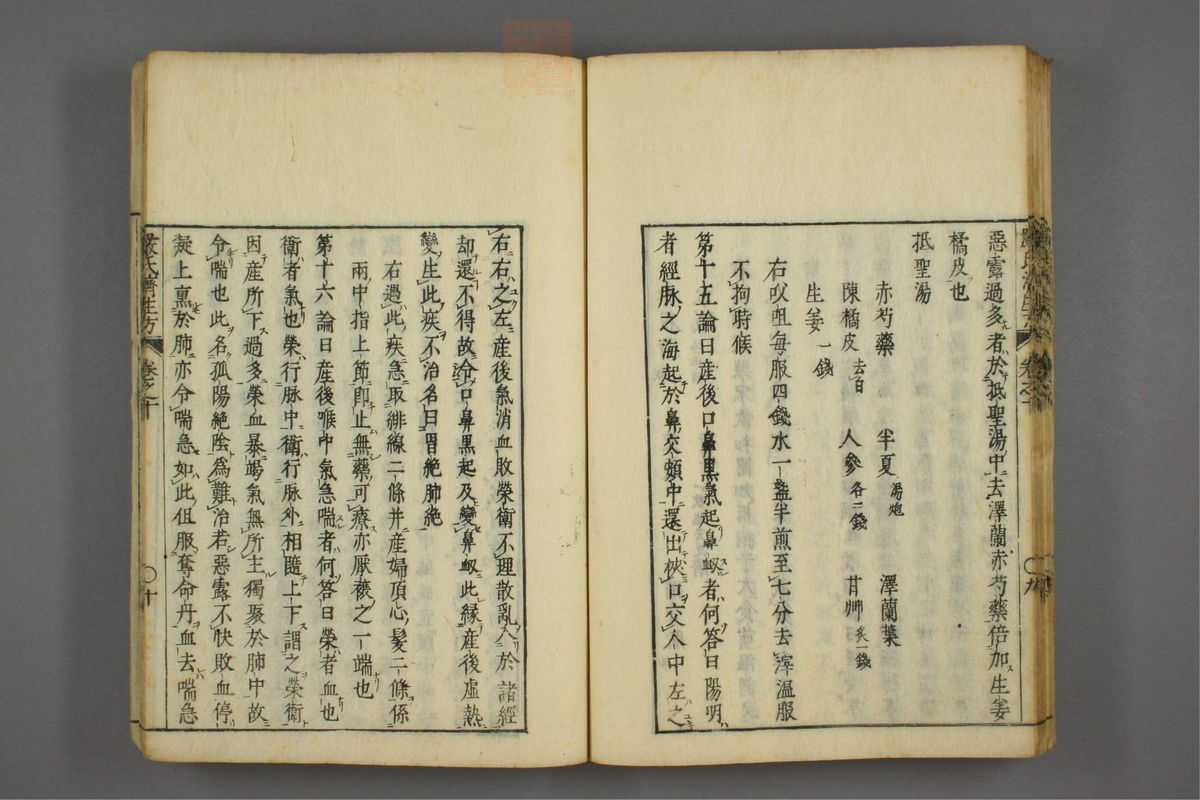 惡露過多者於抵聖湯中去澤蘭赤芍藥倍加生姜
橘皮也
抵聖湯
赤芍藥 半夏湯炮 澤蘭葉
陳橘皮去白 人參各二錢 甘艸炙一錢
生姜一錢
右㕮咀每服四錢水一盞半煎至七分去滓温服
不拘時候
第十五論曰産後口鼻黒氣起鼻衂者何答曰陽明
者經脉之海起於鼻交頞中還出挾口交人中左之
右右之左産後氣消血敗榮衛不理散亂入於諸經
却還不得故令口鼻黒起及變鼻衂此縁産後虛熱
變生此疾不治名曰胃絶肺絶
右遇此疾急取緋線二條并産婦頂心髪二條係
兩中指上節即止無藥可療亦厭禳之一端也
第十六論曰産後喉中氣急喘者何答曰榮者血也
衛者氣也榮行脉中衛行脉外相隨上下謂之榮衛
因産所下過多榮血暴竭氣無所主獨聚於肺中故
令喘也此名孤陽絶陰爲難治若惡露不快敗血停
凝上熏於肺亦令喘急如此但服奪命丹血去喘急
嚴氏濟生方 卷之十 〇十
卷之十 〇九